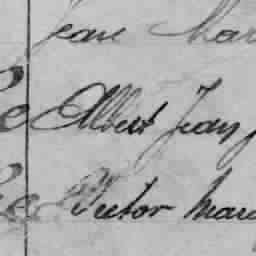 Jean Mar
Albert Jean
Victor Mar